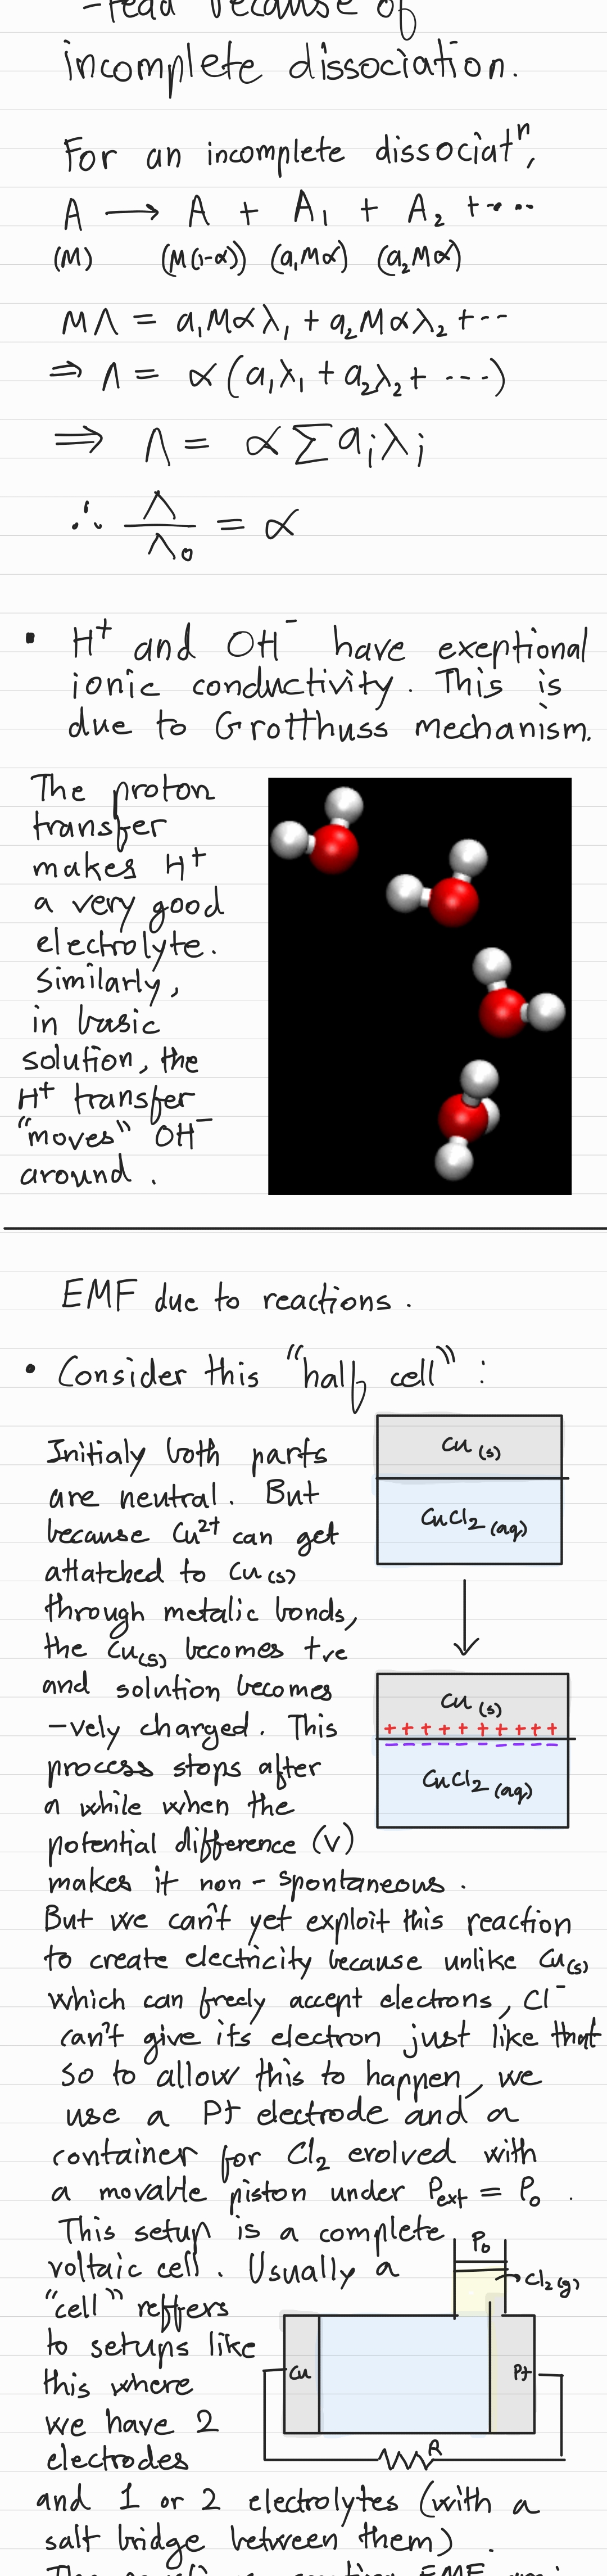 -tead because of
incomplete dissociation.
For an incomplete dissociatⁿ,
A ⟶ A + A₁ + A₂ +....
(M) (M(1-α)) (a₁Mα) (a₂Mα)
MΛ = a₁Mαλ₁ + a₂Mαλ₂ +...
⇒ Λ = α(a₁λ₁ + a₂λ₂ + ....)
⇒ Λ = α∑aᵢλᵢ
∴ Λ/Λ₀ = α
• H⁺ and OH⁻ have exeptional
ionic conductivity. This is
due to Grotthuss mechanism.
The proton
transfer
makes H⁺
a very good
electrolyte.
Similarly,
in basic
solution, the
H⁺ transfer
"moves" OH⁻
around.
EMF due to reactions.
• Consider this "half cell":
Initialy both parts
are neutral. But
because Cu²⁺ can get
attatched to Cu(s)
through metalic bonds,
the Cu(s) becomes +ve
and solution becomes
-vely charged. This
process stops after
a while when the
potential difference (V)
makes it non-spontaneous.
Cu(s)
CuCl₂(aq)
Cu(s)
+ + + + + + + + + +
- - - - - - - - - -
CuCl₂(aq)
But we can't yet exploit this reaction
to create electricity because unlike Cu(s)
which can freely accept electrons, Cl⁻
can't give its electron just like that
so to allow this to happen, we
use a Pt electrode and a
container for Cl₂ evolved with
a movable piston under Pext = P₀.
This setup is a complete
voltaic cell. Usually a
"cell" reffers
to setups like
this where
we have 2
electrodes
P₀
Cl₂(g)
Cu
Pt
R
and 1 or 2 electrolytes (with a
salt bridge between them).